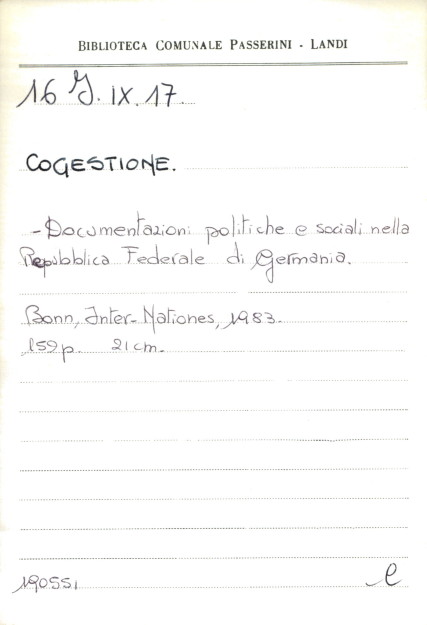 BIBLIOTECA COMUNALE PASSERINI - LANDI
16 J. IX. 17.
COGESTIONE.
- Documentazioni politiche e sociali nella
Repubblica Federale di Germania.
Bonn, Inter-Nationes, 1983.
159 p. 21 cm.
190551
e